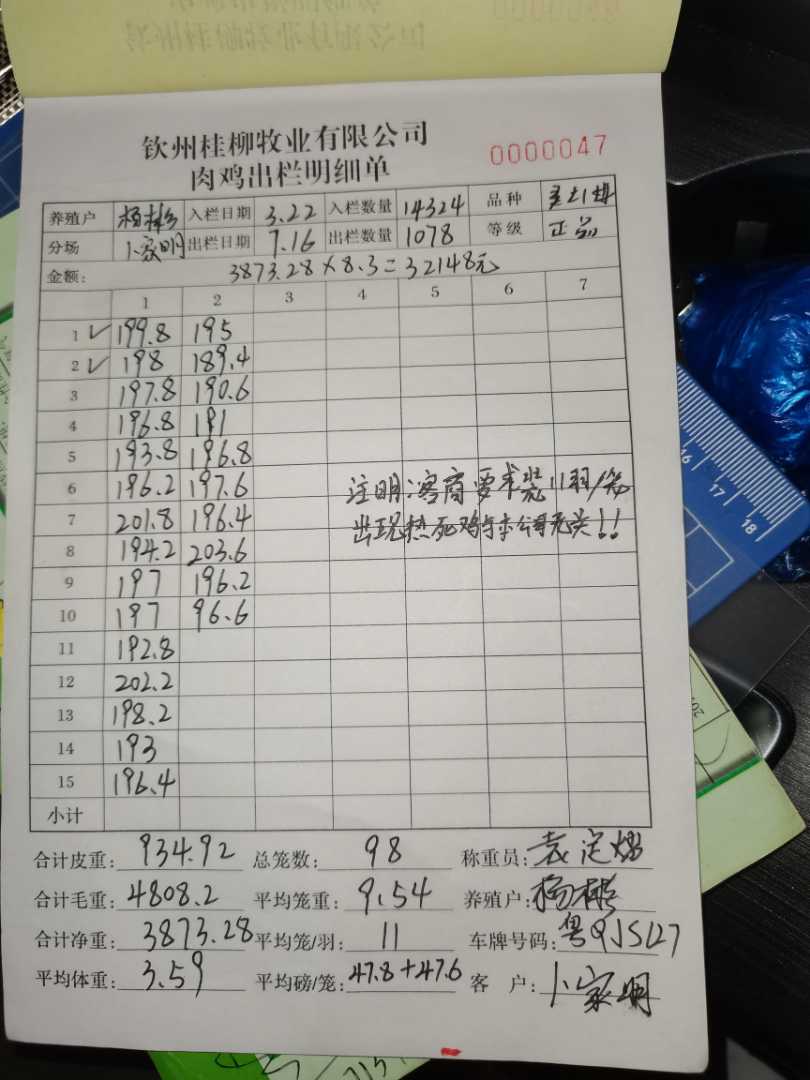 钦州桂柳牧业有限公司
肉鸡出栏明细单
0000047
养殖户 杨彬 入栏日期 3.22 入栏数量 14324 品种
分场 卜家明 出栏日期 7.16 出栏数量 1078 等级 正品
金额: 3873.28×8.3=32148元
1 2 3 4 5 6 7
1 ✓ 199.8 195
2 ✓ 198 189.4
3 197.8 190.6
4 196.8 191
5 193.8 196.8
6 196.2 197.6
7 201.8 196.4
8 194.2 203.6
9 197 196.2
10 197 96.6
11 192.8
12 202.2
13 198.2
14 193
15 196.4
小计
注明:客商要求装11羽/笼
出现热死鸡与本公司无关!!
合计皮重: 934.92 总笼数: 98 称重员: 袁定
合计毛重: 4808.2 平均笼重: 9.54 养殖户: 杨彬
合计净重: 3873.28 平均笼/羽: 11 车牌号码: 粤QJS127
平均体重: 3.59 平均磅/笼: 47.8+47.6 客 户: 卜家明
16 17 18